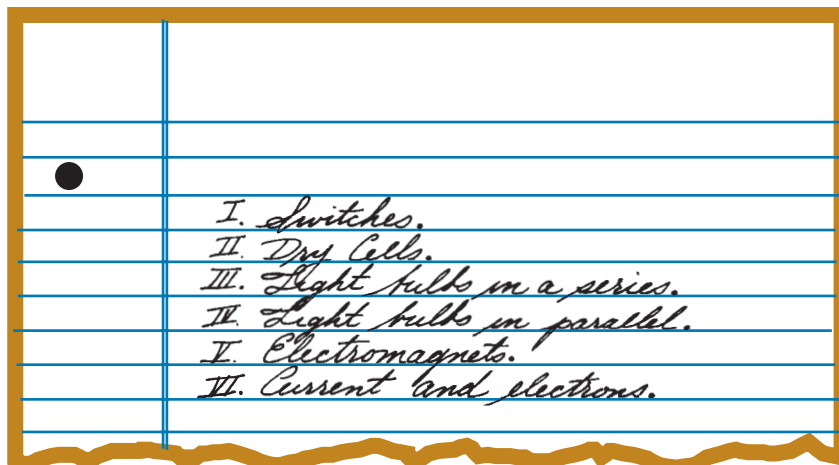 I. Switches.
II. Dry Cells.
III. Light bulbs in a series.
IV. Light bulbs in parallel.
V. Electromagnets.
VI. Current and electrons.